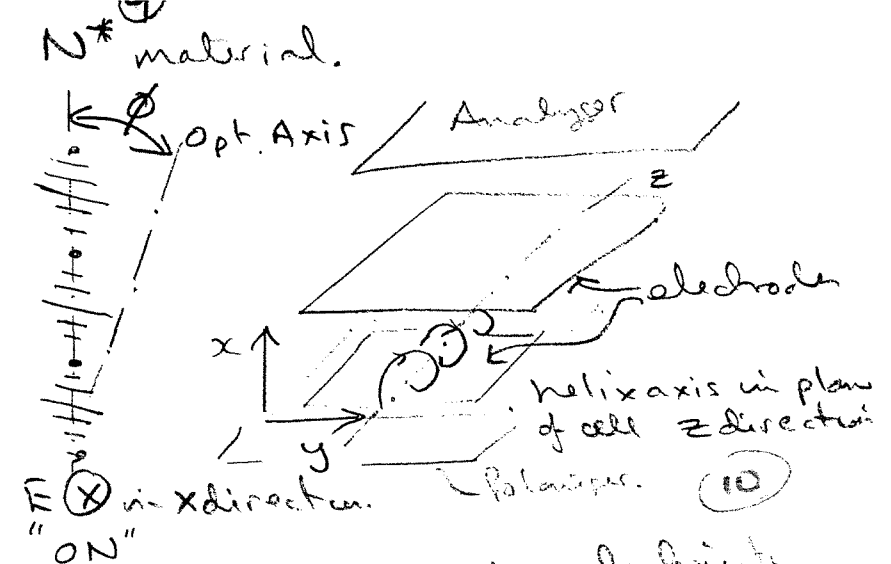 7
N* material.
φ
Opt. Axis
Analyser
z
electrodes
x
helix axis in plane
of cell z direction
y
Polariser.
10
E ⊗ in x direction.
"ON"